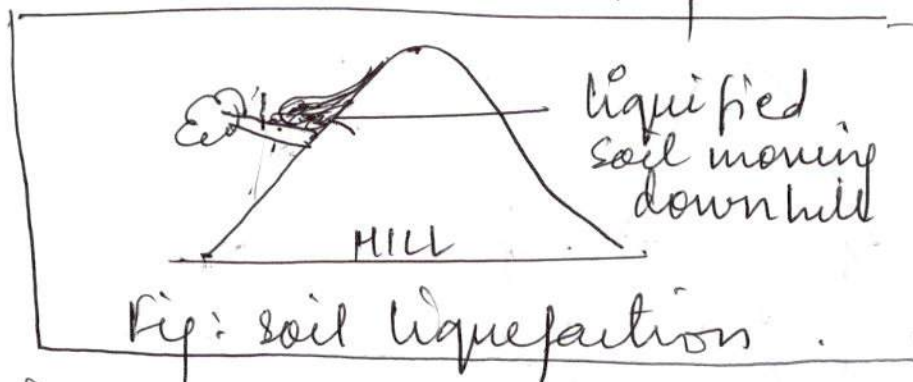 liquified
soil moving
downhill
HILL
Fig: soil liquefaction.